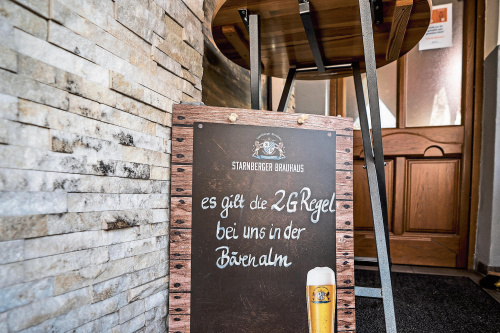 STARNBERGER BRAUHAUS
es gilt die 2G Regel
bei uns in der
Bärenalm